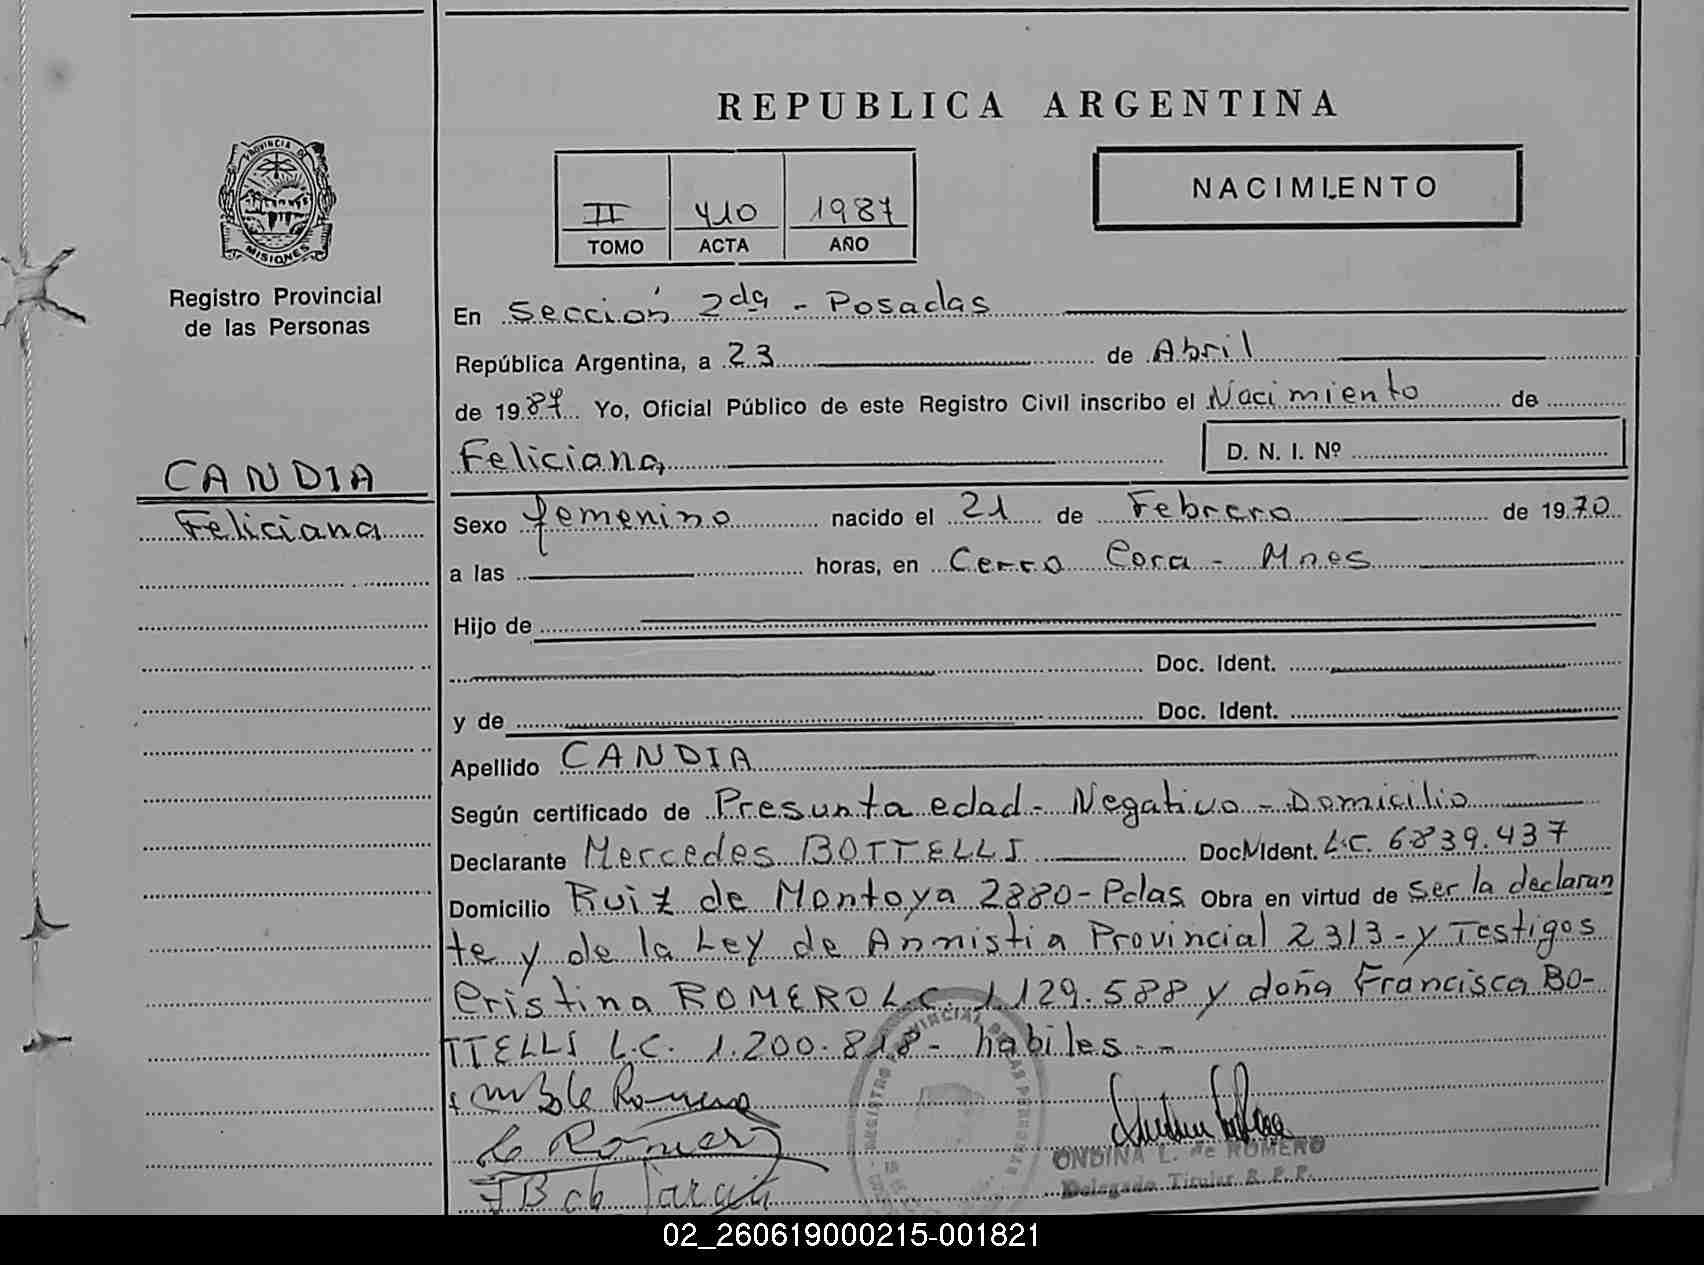 REPUBLICA ARGENTINA
PROVINCIA DE
MISIONES
Registro Provincial
de las Personas
II 410 1987
TOMO ACTA AÑO
NACIMIENTO
En Sección 2da - Posadas
República Argentina, a 23 de Abril
de 1987 Yo, Oficial Público de este Registro Civil inscribo el Nacimiento de
Feliciana, D. N. I. Nº
CANDIA
Feliciana
Sexo femenino nacido el 21 de Febrero de 1970
a las horas, en Cerro Cora - Mnes
Hijo de
Doc. Ident.
y de Doc. Ident.
Apellido CANDIA
Según certificado de Presunta edad - Negativo - Domicilio
Declarante Mercedes BOTTELLI Doc. Ident. L.C. 6839.437
Domicilio Ruiz de Montoya 2880 - Pdas Obra en virtud de ser la declaran
te y de la Ley de Amnistia Provincial 2313 - y Testigos
Cristina ROMERO L.C. 1.129.588 y doña Francisca BO-
TTELLI L.C. 1.200.818 - habiles - -
Romero
Romero
ONDINA L. de ROMERO
Delegado Titular R. P. P.
02_260619000215-001821